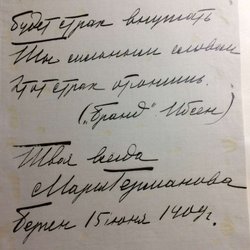 будетъ страх внушать
Ты сильным словом
Этот страх отгонишь.
("Бранд" Ибсен)
Твоя всегда
Мария Германова
Берген 15 июня 1909 г.